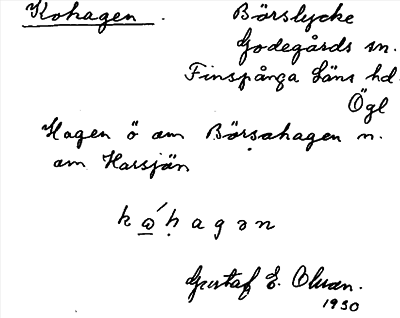 Kohagen. Börslycke
Godegårds sn.
Finspånga läns hd.
Ögl
Hagen ö om Börsahagen n.
om Harsjön
Gustaf E. Olson.
1930